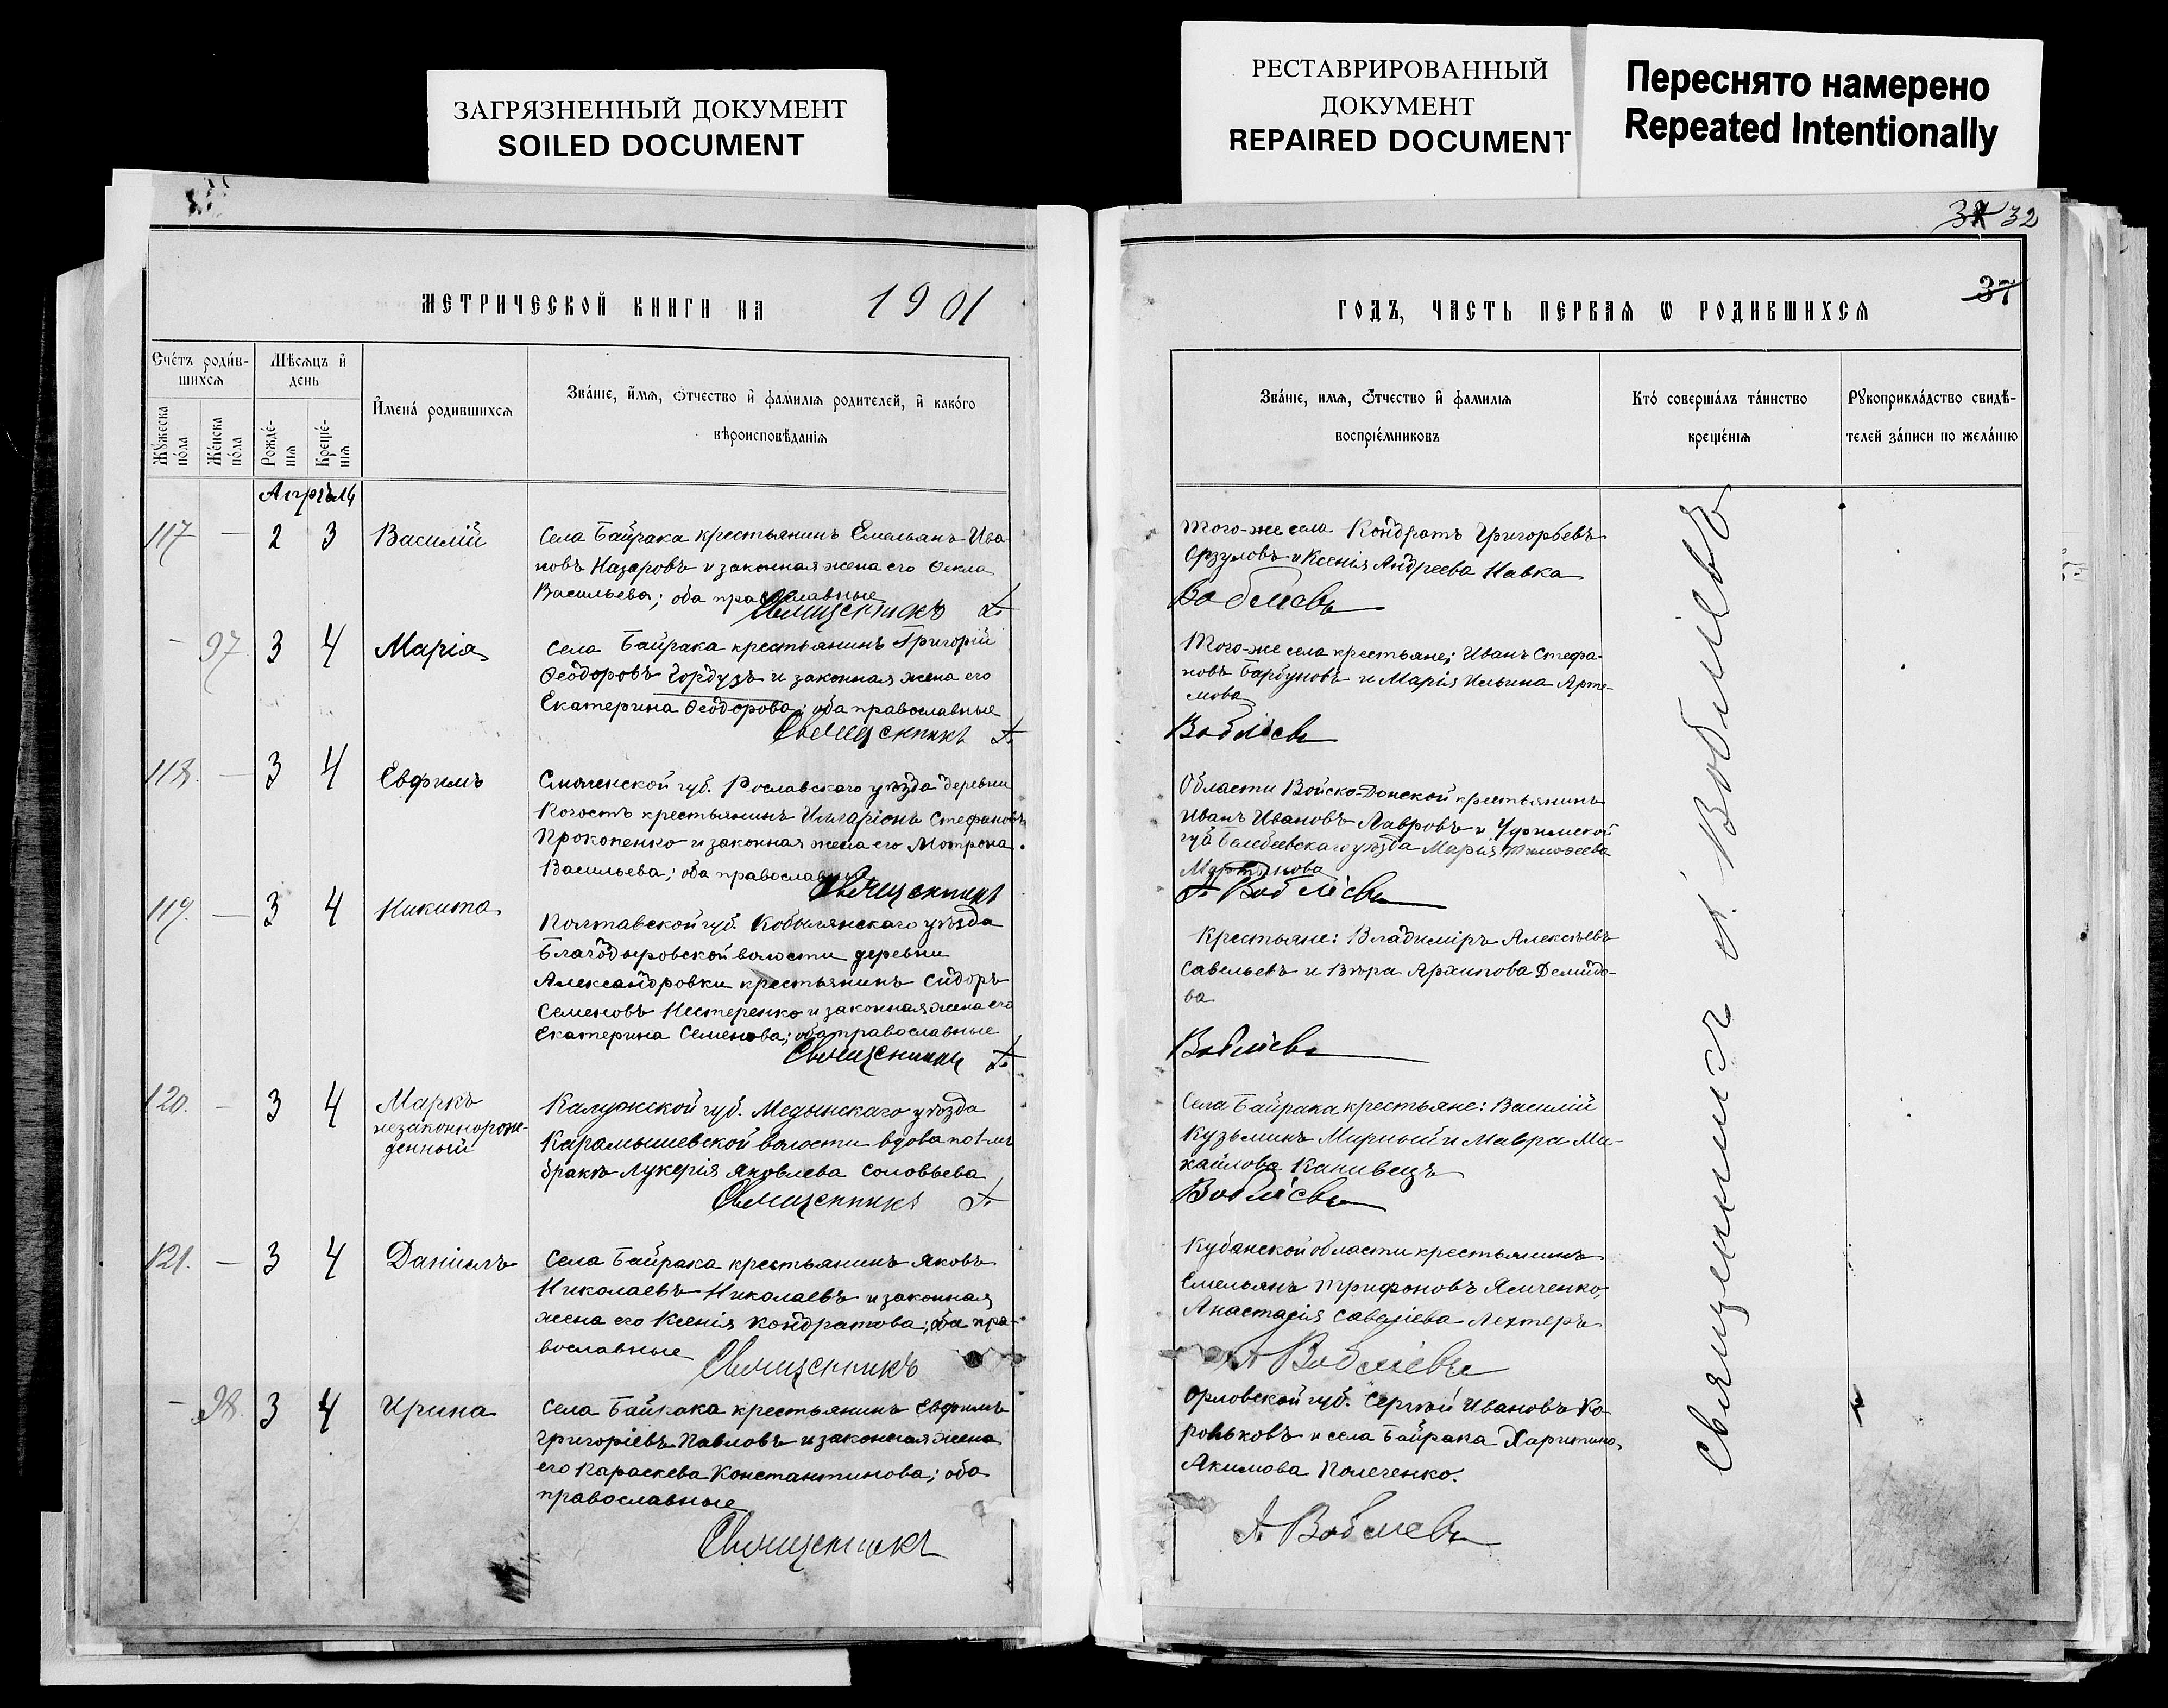 ЗАГРЯЗНЕННЫЙ ДОКУМЕНТ
SOILED DOCUMENT
РЕСТАВРИРОВАННЫЙ
ДОКУМЕНТ
REPAIRED DOCUMENT
Переснято намерено
Repeated Intentionally
32
37
МЕТРИЧЕСКОЙ КНИГИ НА 1901
Счетъ родив-
шихся
Мѣсяцъ и
день
Мужеска
пола
Женска
пола
Рожде-
нія
Креще-
нія
Имена родившихся
Званіе, имя, отчество и фамилія родителей, и какого
вѣроисповѣданія
Апрѣль
117 — 2 3 Василій
Села Байрака крестьянинъ Емельянъ Ива
новъ Назаровъ и законная жена его Фекла
Васильева; оба православные
Священникъ А.
— 97 3 4 Марія
Села Байрака крестьянинъ Григорій
Ѳеодоровъ Гордузъ и законная жена его
Екатерина Ѳеодорова; оба православные
Священникъ А.
118. — 3 4 Евфимъ
Смоленской губ. Рославскаго уѣзда деревни
Погостъ крестьянинъ Илларіонъ Стефановъ
Прокопенко и законная жена его Мотрона
Васильева; оба православные
Священникъ
119. — 3 4 Никита
Полтавской губ. Кобылянскаго уѣзда
волости деревни
Александровки крестьянинъ Сидоръ
Семеновъ Нестеренко и законная жена его
Екатерина Семенова; оба православные
Священникъ А.
120. — 3 4 Маркъ
незаконнорож-
денный
Калужской губ. Медынскаго уѣзда
Карамышевской волости вдова по 1-мъ
бракѣ Лукерія Яковлева Соловьева
Священникъ А.
121. — 3 4 Даніилъ
Села Байрака крестьянинъ Яковъ
Николаевъ Николаевъ и законная
жена его Ксенія Кондратова; оба пра-
вославные
Священникъ
— 98. 3 4 Ирина
Села Байкака крестьянинъ Евфимъ
Григоріевъ Павловъ и законная жена
его Параскева Константинова; оба
православные
Священникъ
ГОДЪ, ЧАСТЬ ПЕРВАЯ Ѡ РОДИВШИХСЯ
Званіе, имя, отчество и фамилія
воспріемниковъ
Кто совершалъ таинство
крещенія
Рукоприкладство свидѣ-
телей записи по желанію
Того-же села Кондратъ Григорьевъ
Орзуловъ и Ксенія Андреева Кавка
Воблievъ
Того-же села крестьяне; Иванъ Стефа-
новъ Барбуновъ и Марія Ильина Арте-
мова
Вобліевъ
Области Войско-Донской крестьянинъ
Иванъ Ивановъ Лавровъ и Уфимской
губ Белебеевскаго уѣзда Марія Тимоѳеева
Мартынова
А Вобліевъ
Крестьяне: Владиміръ Алексѣевъ
Савельевъ и Вѣра Архипова Демидо-
ва
Вобліевъ
Села Байрака крестьяне: Василій
Кузьминъ Мирный и Мавра Ми-
хайлова Канивецъ
Вобліевъ
Кубанской области крестьянинъ
Емельянъ Трифоновъ
Анастасія Савеліева Лехтеръ
А Вобліевъ
Орловской губ. Сергѣй Ивановъ Ко-
роньковъ и села Байрака Харитина
Акимова Полеченко.
А Вобліевъ
Священникъ А. Вобліевъ